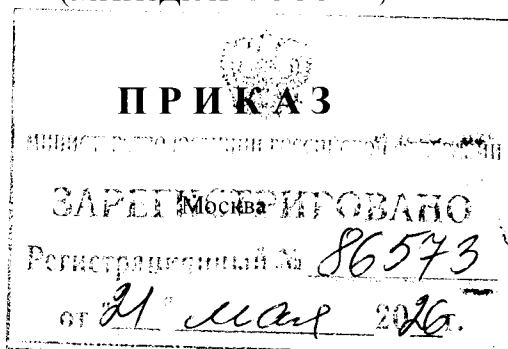 ПРИКАЗ
МИНИСТЕРСТВО ЮСТИЦИИ РОССИЙСКОЙ ФЕДЕРАЦИИ
ЗАРЕГИСТРИРОВАНО
Москва
Регистрационный № 86573
от "21" мая 2026г.